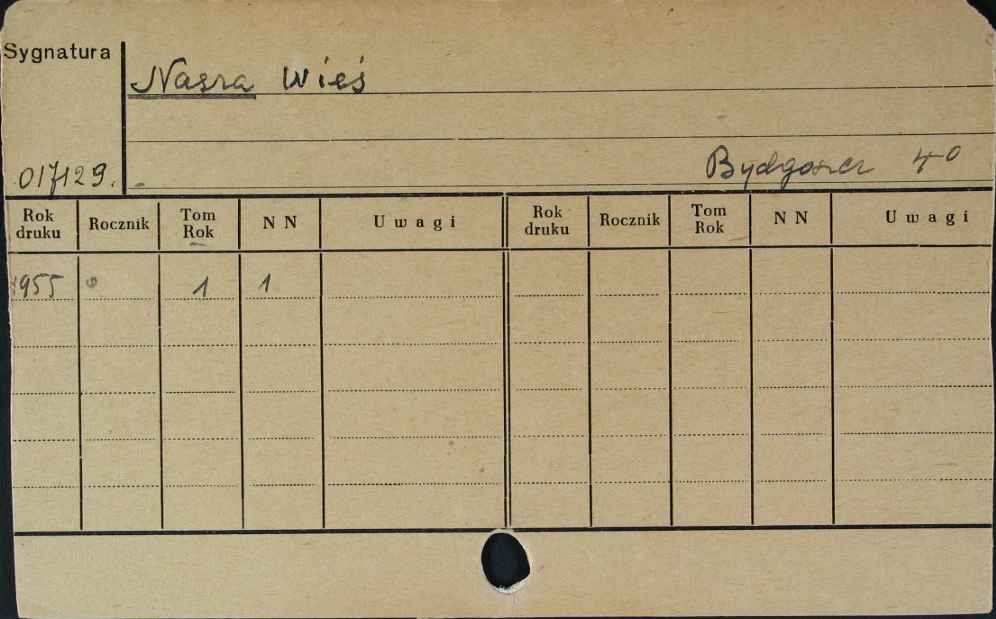 Sygnatura
Nasza Wieś
Bydgoszcz 4°
017129.
Rok druku Rocznik Tom Rok N N Uwagi Rok druku Rocznik Tom Rok N N Uwagi
1955 1 1